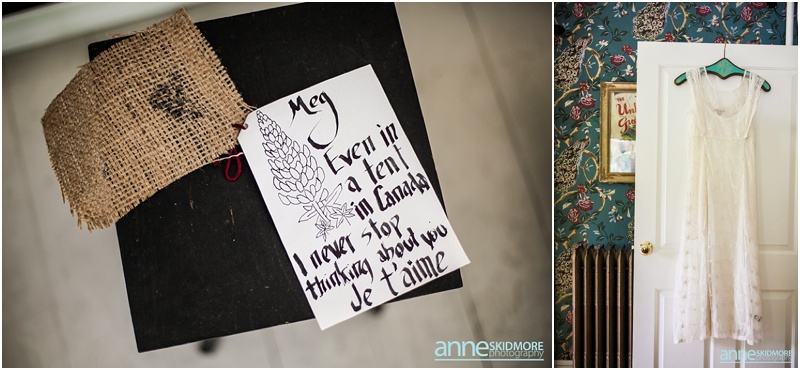 Meg
Even in
a tent
in Canada
I never stop
thinking about you
Je t'aime
anne SKIDMORE
photography
THE
anne SKIDMORE
photography